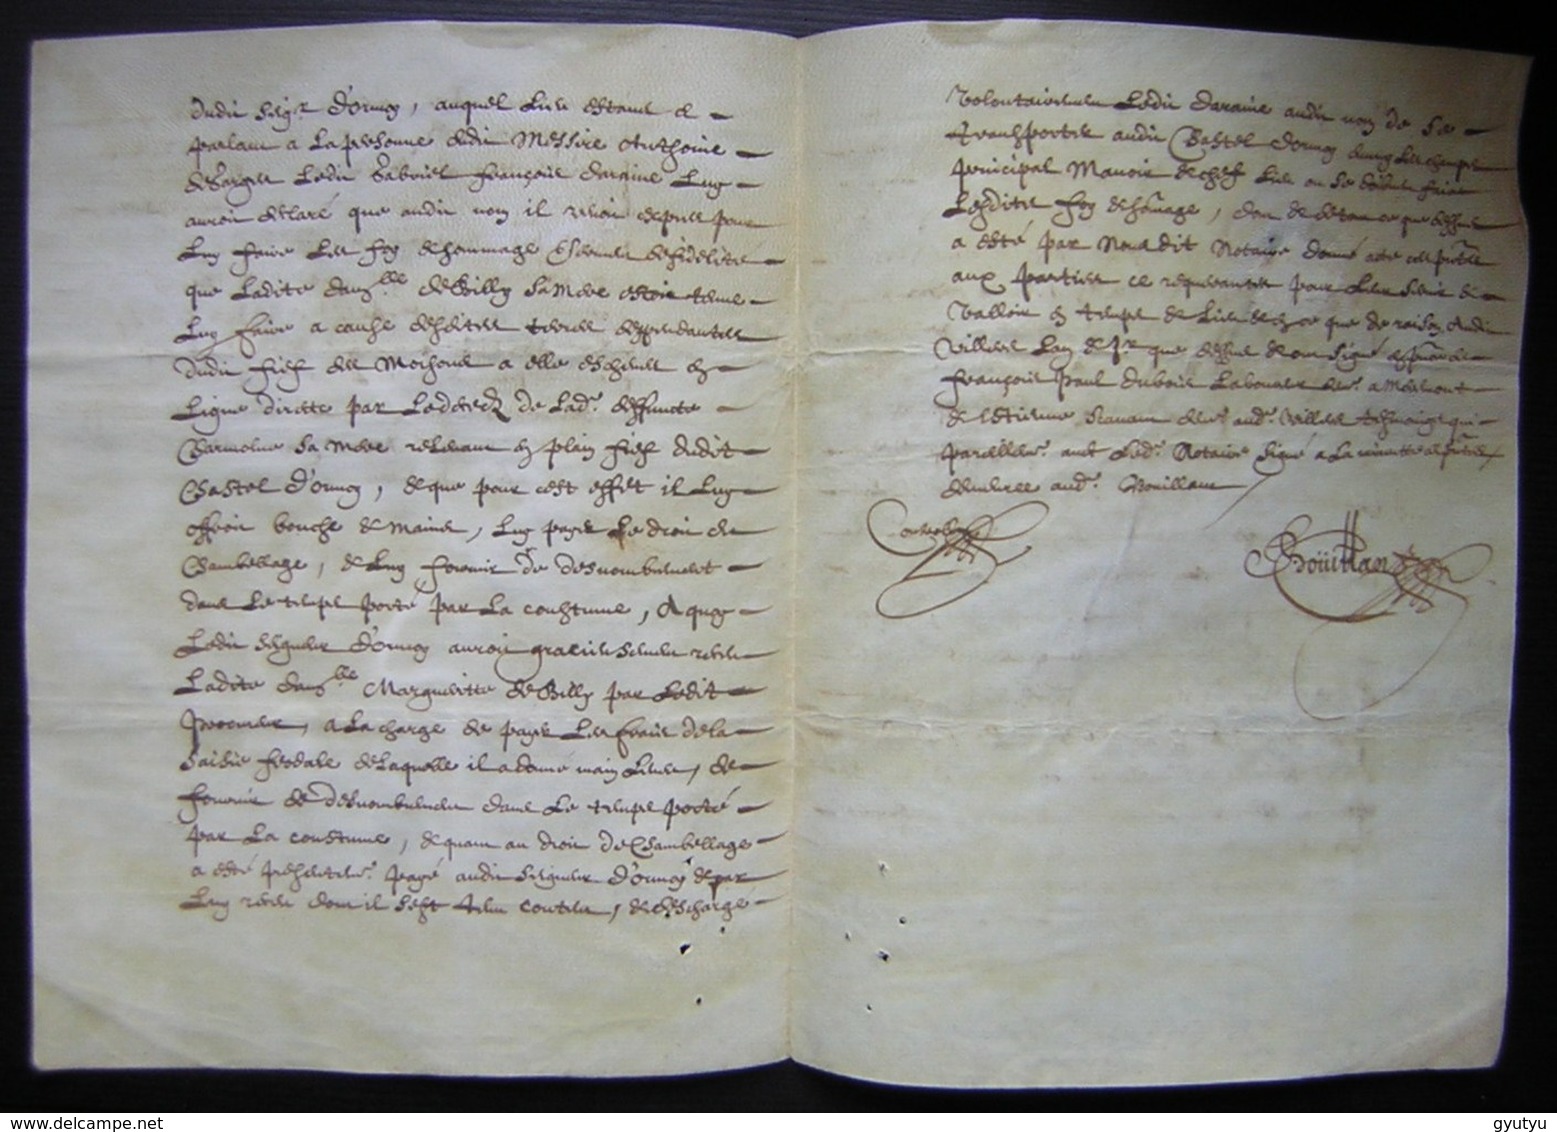 dudit seigr d'ormoy, auquel lieu estant et
parlant a la personne dudit Messire Anthoine
desarges ledit Gabriel françois daraine luy
auroit déclaré que audit nom il venoit exprès pour
luy faire les foy et hommage et serment de fidélité
que ladite damlle de Billy sa mere estoit tenue
luy faire a cause desdites terres deppendantes
dudit fief des Moisons a elle escheues en
ligne directe par le deceds de lad. deffuncte
sa mere relevant en plain fief dudit
Chastel d'ormoy, et que pour cest effet il luy
offroit bouche et mains, luy payer le droit de
Chambellage, et luy fournir de desnombrement
dans le temps porté par la coustume, A quoy
ledit seigneur d'ormoy auroit receu
ladite damlle Margueritte de Billy par ledit
procureur, a la charge de payer les frais de la
saisie feodale de laquelle il a donné main levée, de
fournir de desnombrement dans le temps porté
par la coustume, et quant au droit de Chambellage
a esté presentemt payé audit seigneur d'ormoy et par
luy receu dont il s'est tenu content, et descharge
volontairement ledit daraine audit nom de se
transporter audit Chastel d'ormoy
principal Manoir et chef lieu ou se doibvent faire
lesdites foy et homage, dont et de tout ce que dessus
a esté par Nous dit Notaire donné acte
aux parties ce requerantes pour leur servir et
valloir en temps et lieu et ce que de raison
Villers l'an et jr que dessus et ont signé
françois Paul dubois laboureur demt a
et Estienne demt aud. Villers tesmoings qui
pareillemt ont led. Notaire signé a la minutte
aud. Bouillant
Bouillan
www.delcampe.net
gyutyu